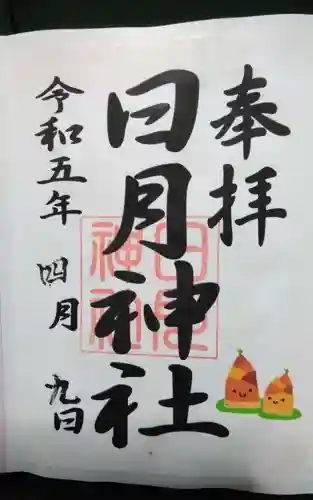 奉拝
日月神社
令和五年 四月 九日
日月
神社